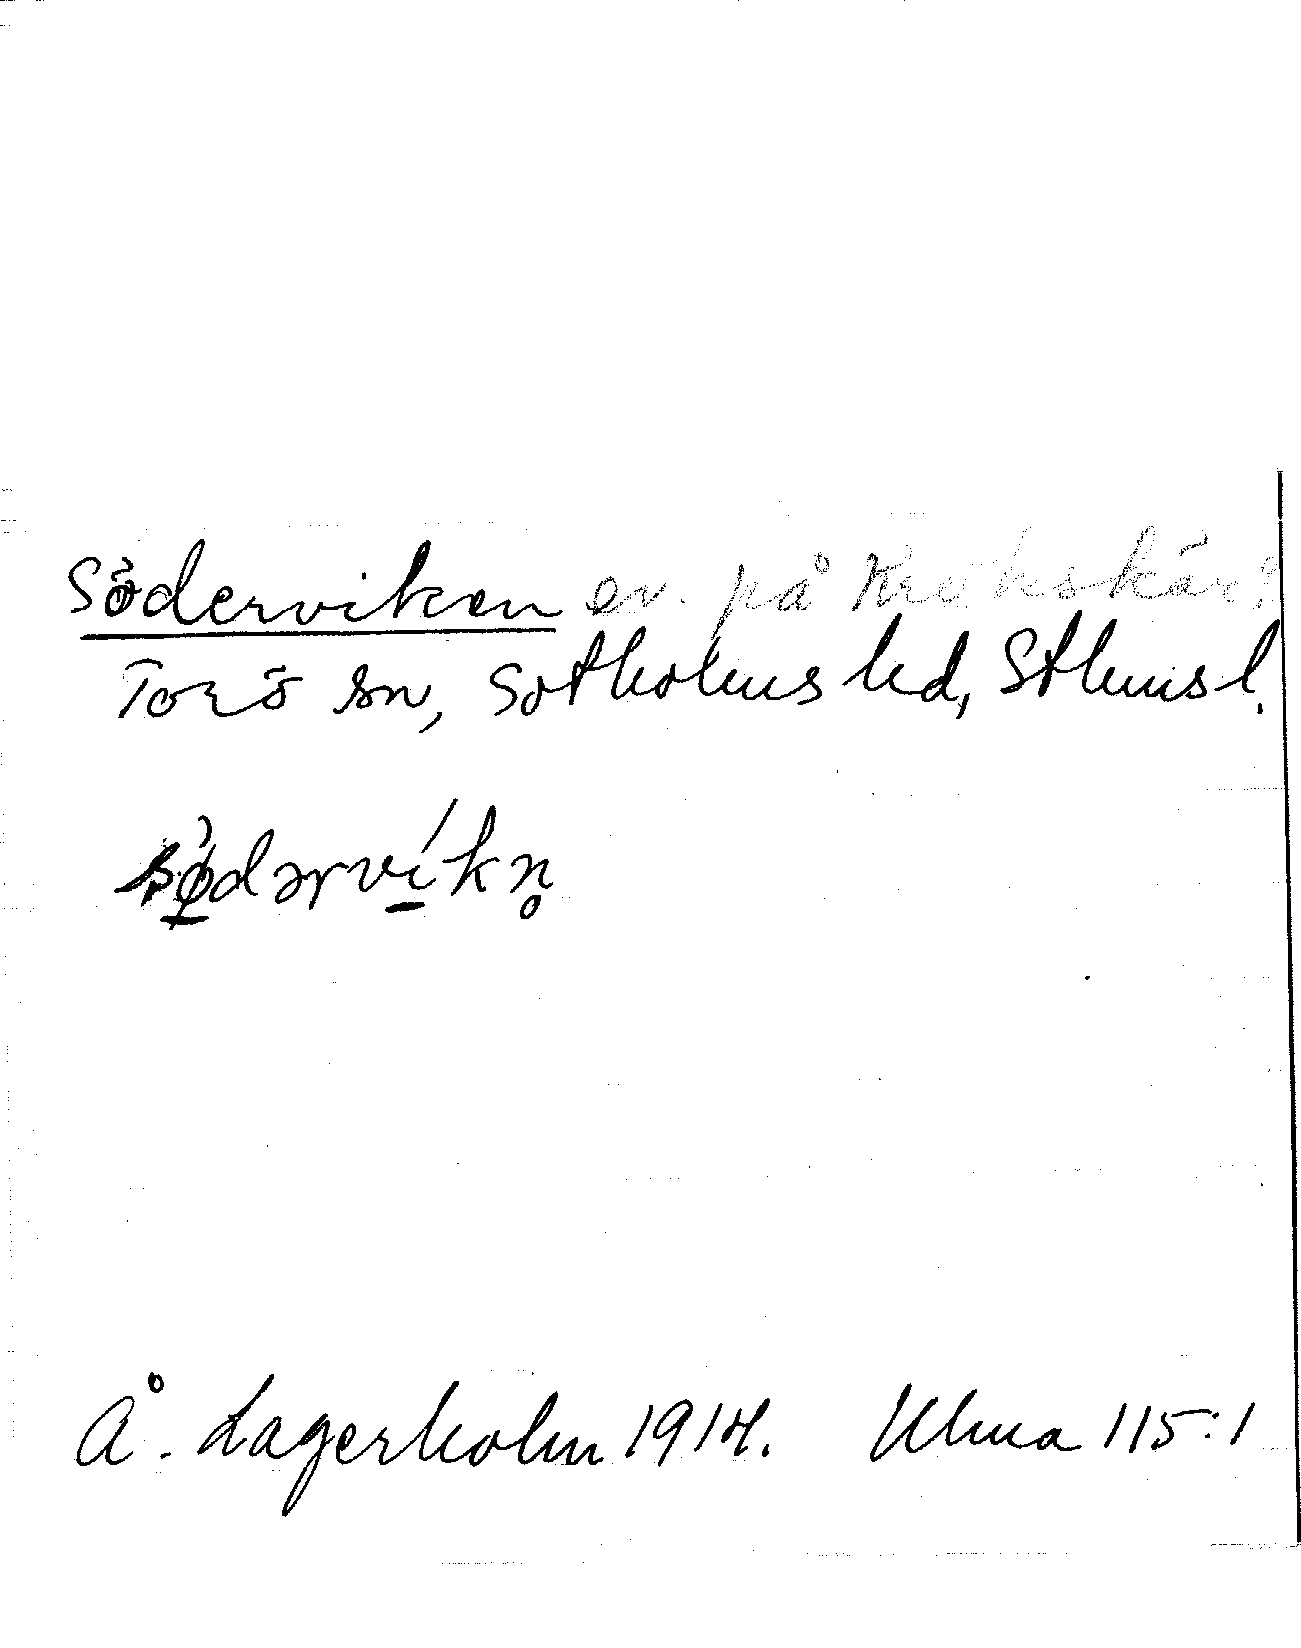 Söderviken ev. på Krokskär?
Torö sn, Sotholms hd, Sthms l.
sø̀dərvíkn̥
Å. Lagerholm 1914. Ulma 115:1